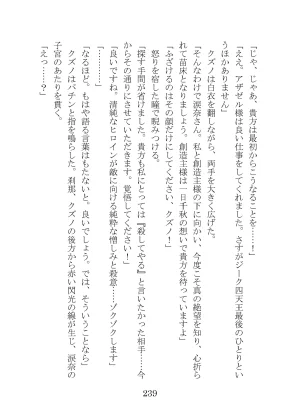 「じゃ、じゃあ、貴方は最初からこうなることを……！」
「ええ。アザゼル様は良い仕事をしてくれました。さすがジーク四天王最後のひとりとい
うほかありません」
クズノは白衣を翻しながら、両手を大きく広げた。
「そんなわけで涙奈さん。私と創造主様の下に向かい、今度こそ真の絶望を知り、心折ら
れて苗床となりましょう。創造主様は一日千秋の想いで貴方を待っていますよ」
「ふざけるのはその顔だけにしてください、クズノ！」
怒りを宿した瞳で睨みつける。
「探す手間が省けました。貴方も私にとっては『殺してやる』と言いたかった相手……今
からその通りにさせていただきます。覚悟してください！」
「良いですね。清純なヒロインが敵に向ける純粋な憎しみと殺意……ゾクゾクします」
「……………」
「なるほど、もはや語る言葉はもたないと。良いでしょう。では、そういうことなら」
クズノはパチンと指を鳴らした。刹那、クズノの後方から赤い閃光の線が生じ、涙奈の
子宮のあたりを貫く。
「えっ……？」
239